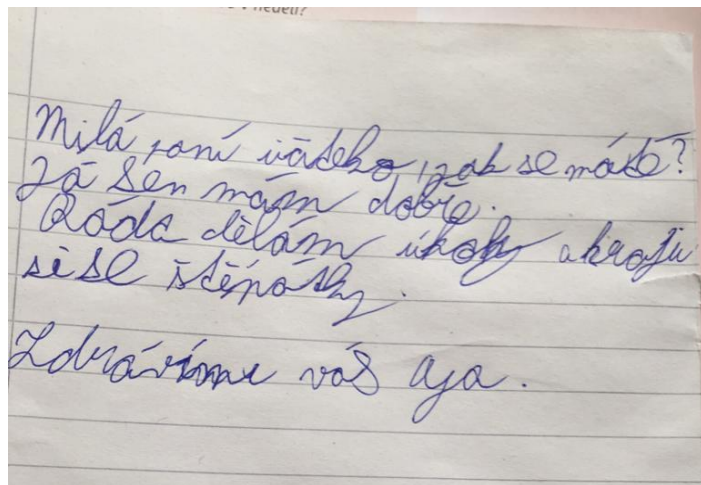 v neděli?
Milá paní , jak se máte?
Já sem mám dobře.
Ráda dělám úkoly a hraju
si se štěpánky.
Zdravíme vás Aja.